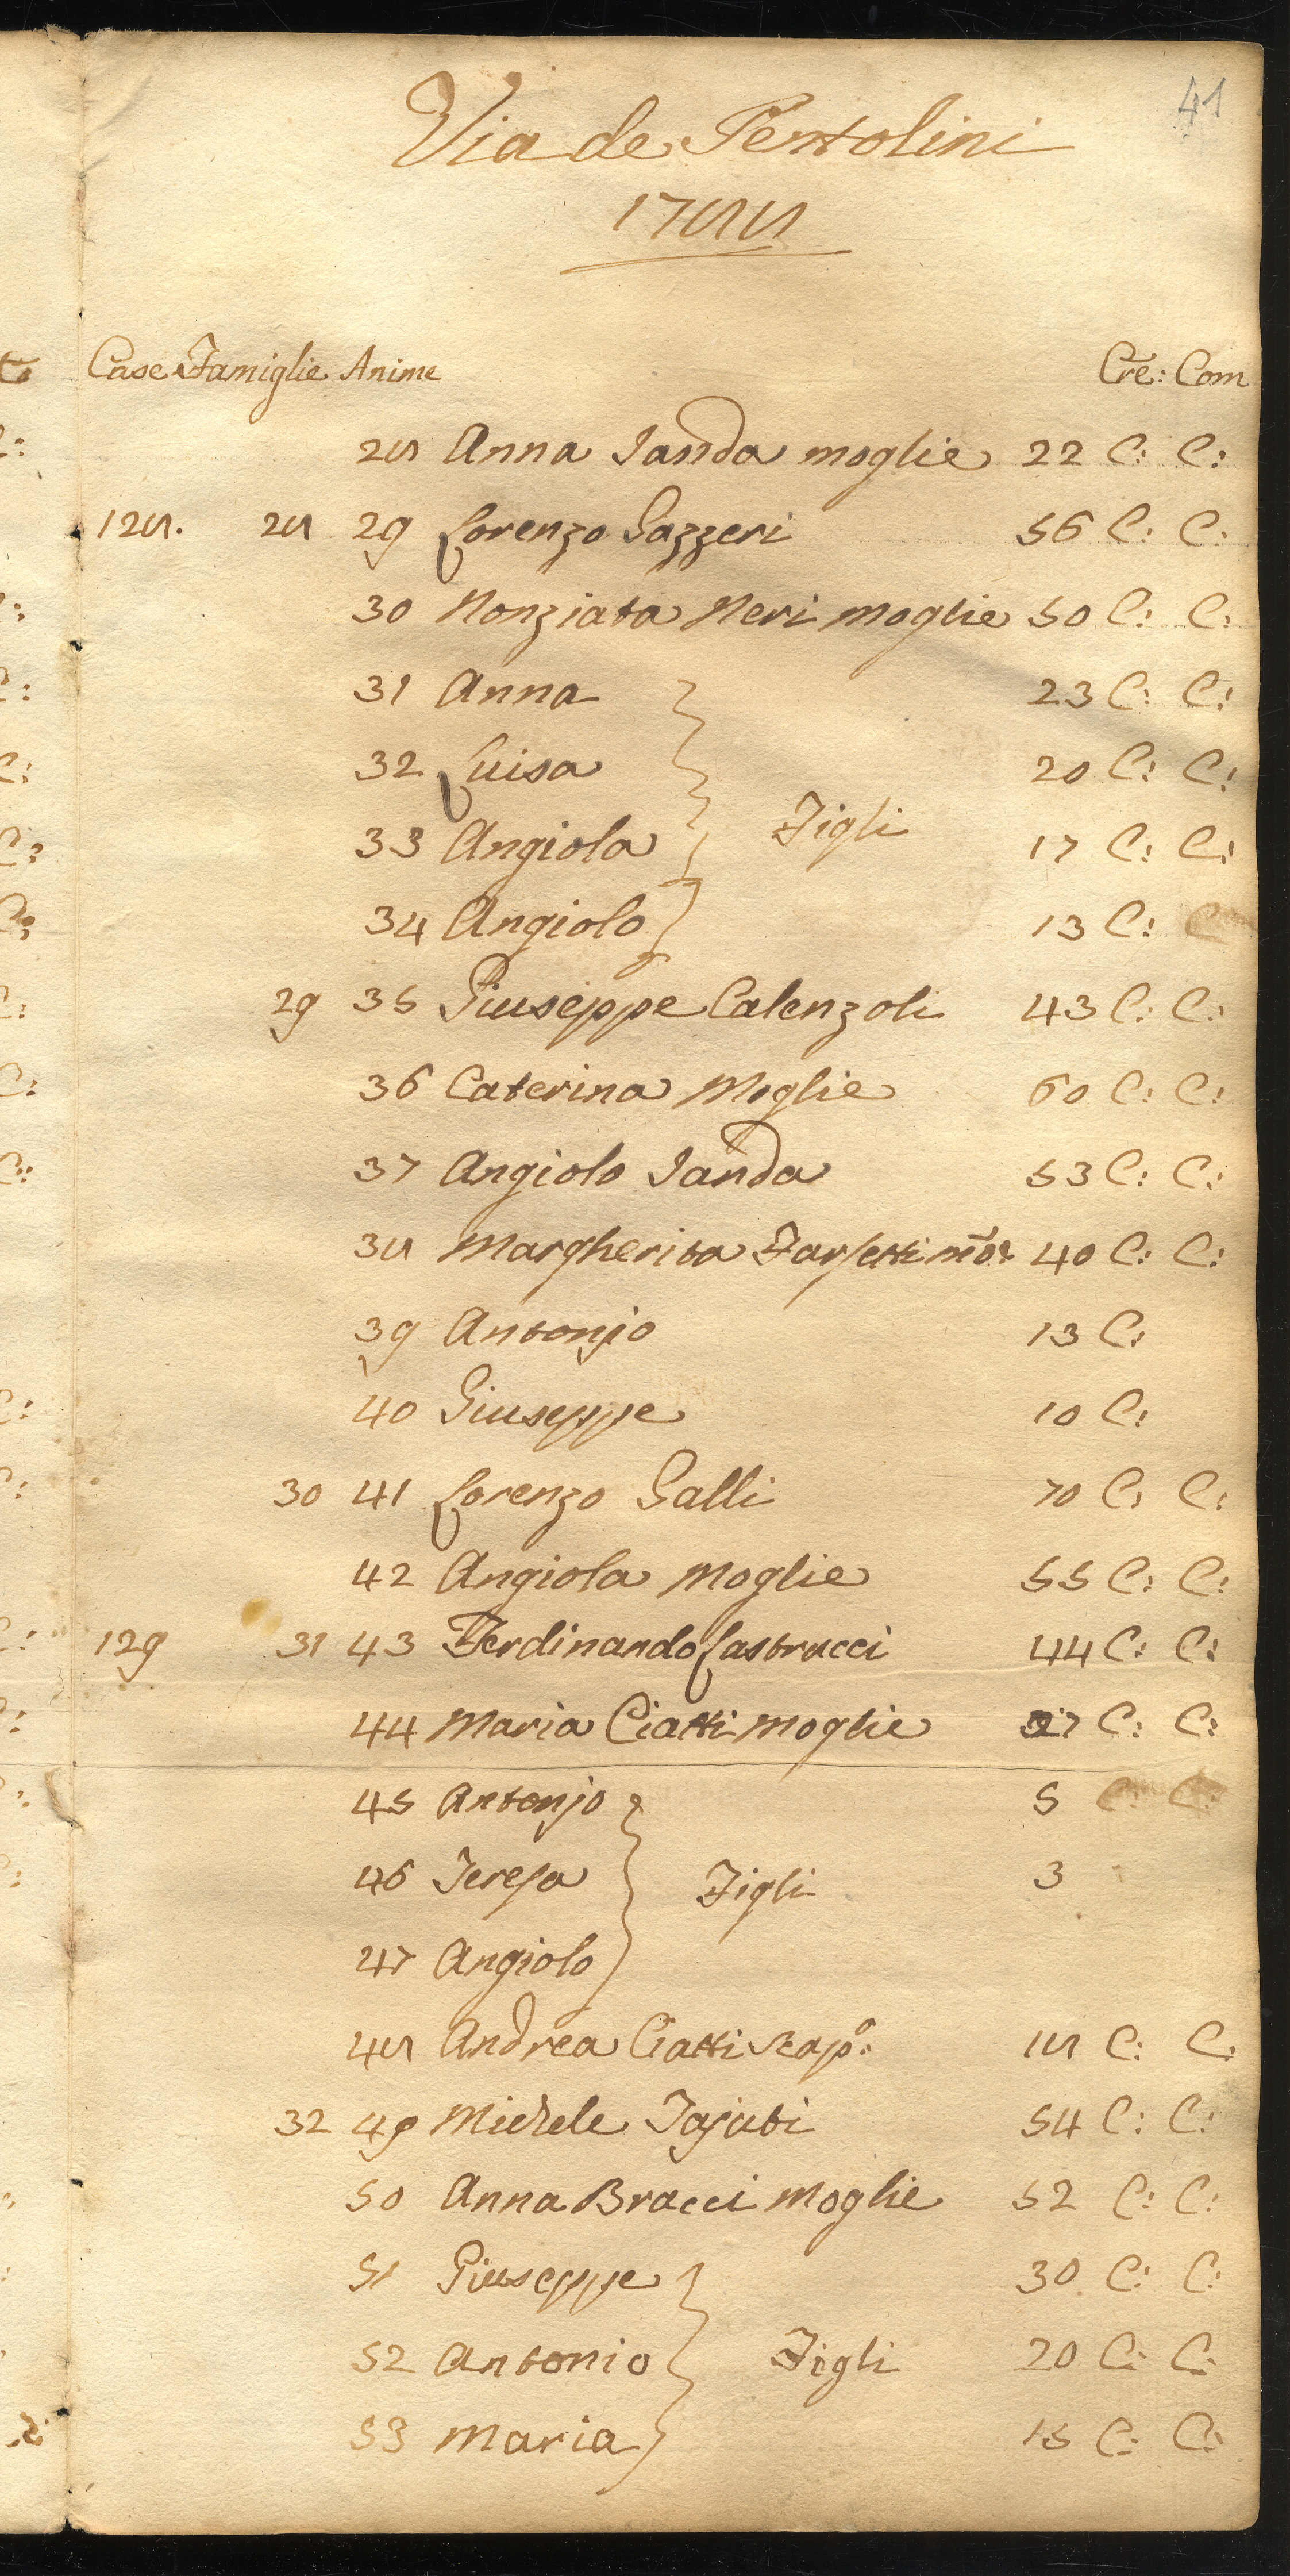 41
Via de Pentolini
1788
Case Famiglie Anime Cre: Com
28 Anna Landa moglie 22 C: C:
128. 28 29 Lorenzo Gazzeri 56 C: C:
30 Nonziata Neri moglie 50 C: C:
31 Anna 23 C: C:
32 Luisa 20 C: C:
33 Angiola Figli 17 C: C:
34 Angiolo 13 C: C
29 35 Giuseppe Calenzoli 43 C: C:
36 Caterina Moglie 60 C: C:
37 Angiolo Landa 53 C: C:
38 Margherita Farsetti mo: 40 C: C:
39 Antonjo 13 C:
40 Giuseppe 10 C:
30 41 Lorenzo Galli 70 C: C:
42 Angiola Moglie 55 C: C:
129 31 43 Ferdinando Castrucci 44 C: C:
44 Maria Ciatti moglie 27 C: C:
45 Antonjo 5 C: C:
46 Teresa Figli 3
47 Angiolo
48 Andrea Ciatti Scap.º: 18 C: C:
32 49 Michele 54 C: C:
50 Anna Bracci Moglie 52 C: C:
51 Giuseppe 30 C: C:
52 Antonio Figli 20 C: C:
53 Maria 15 C: C: